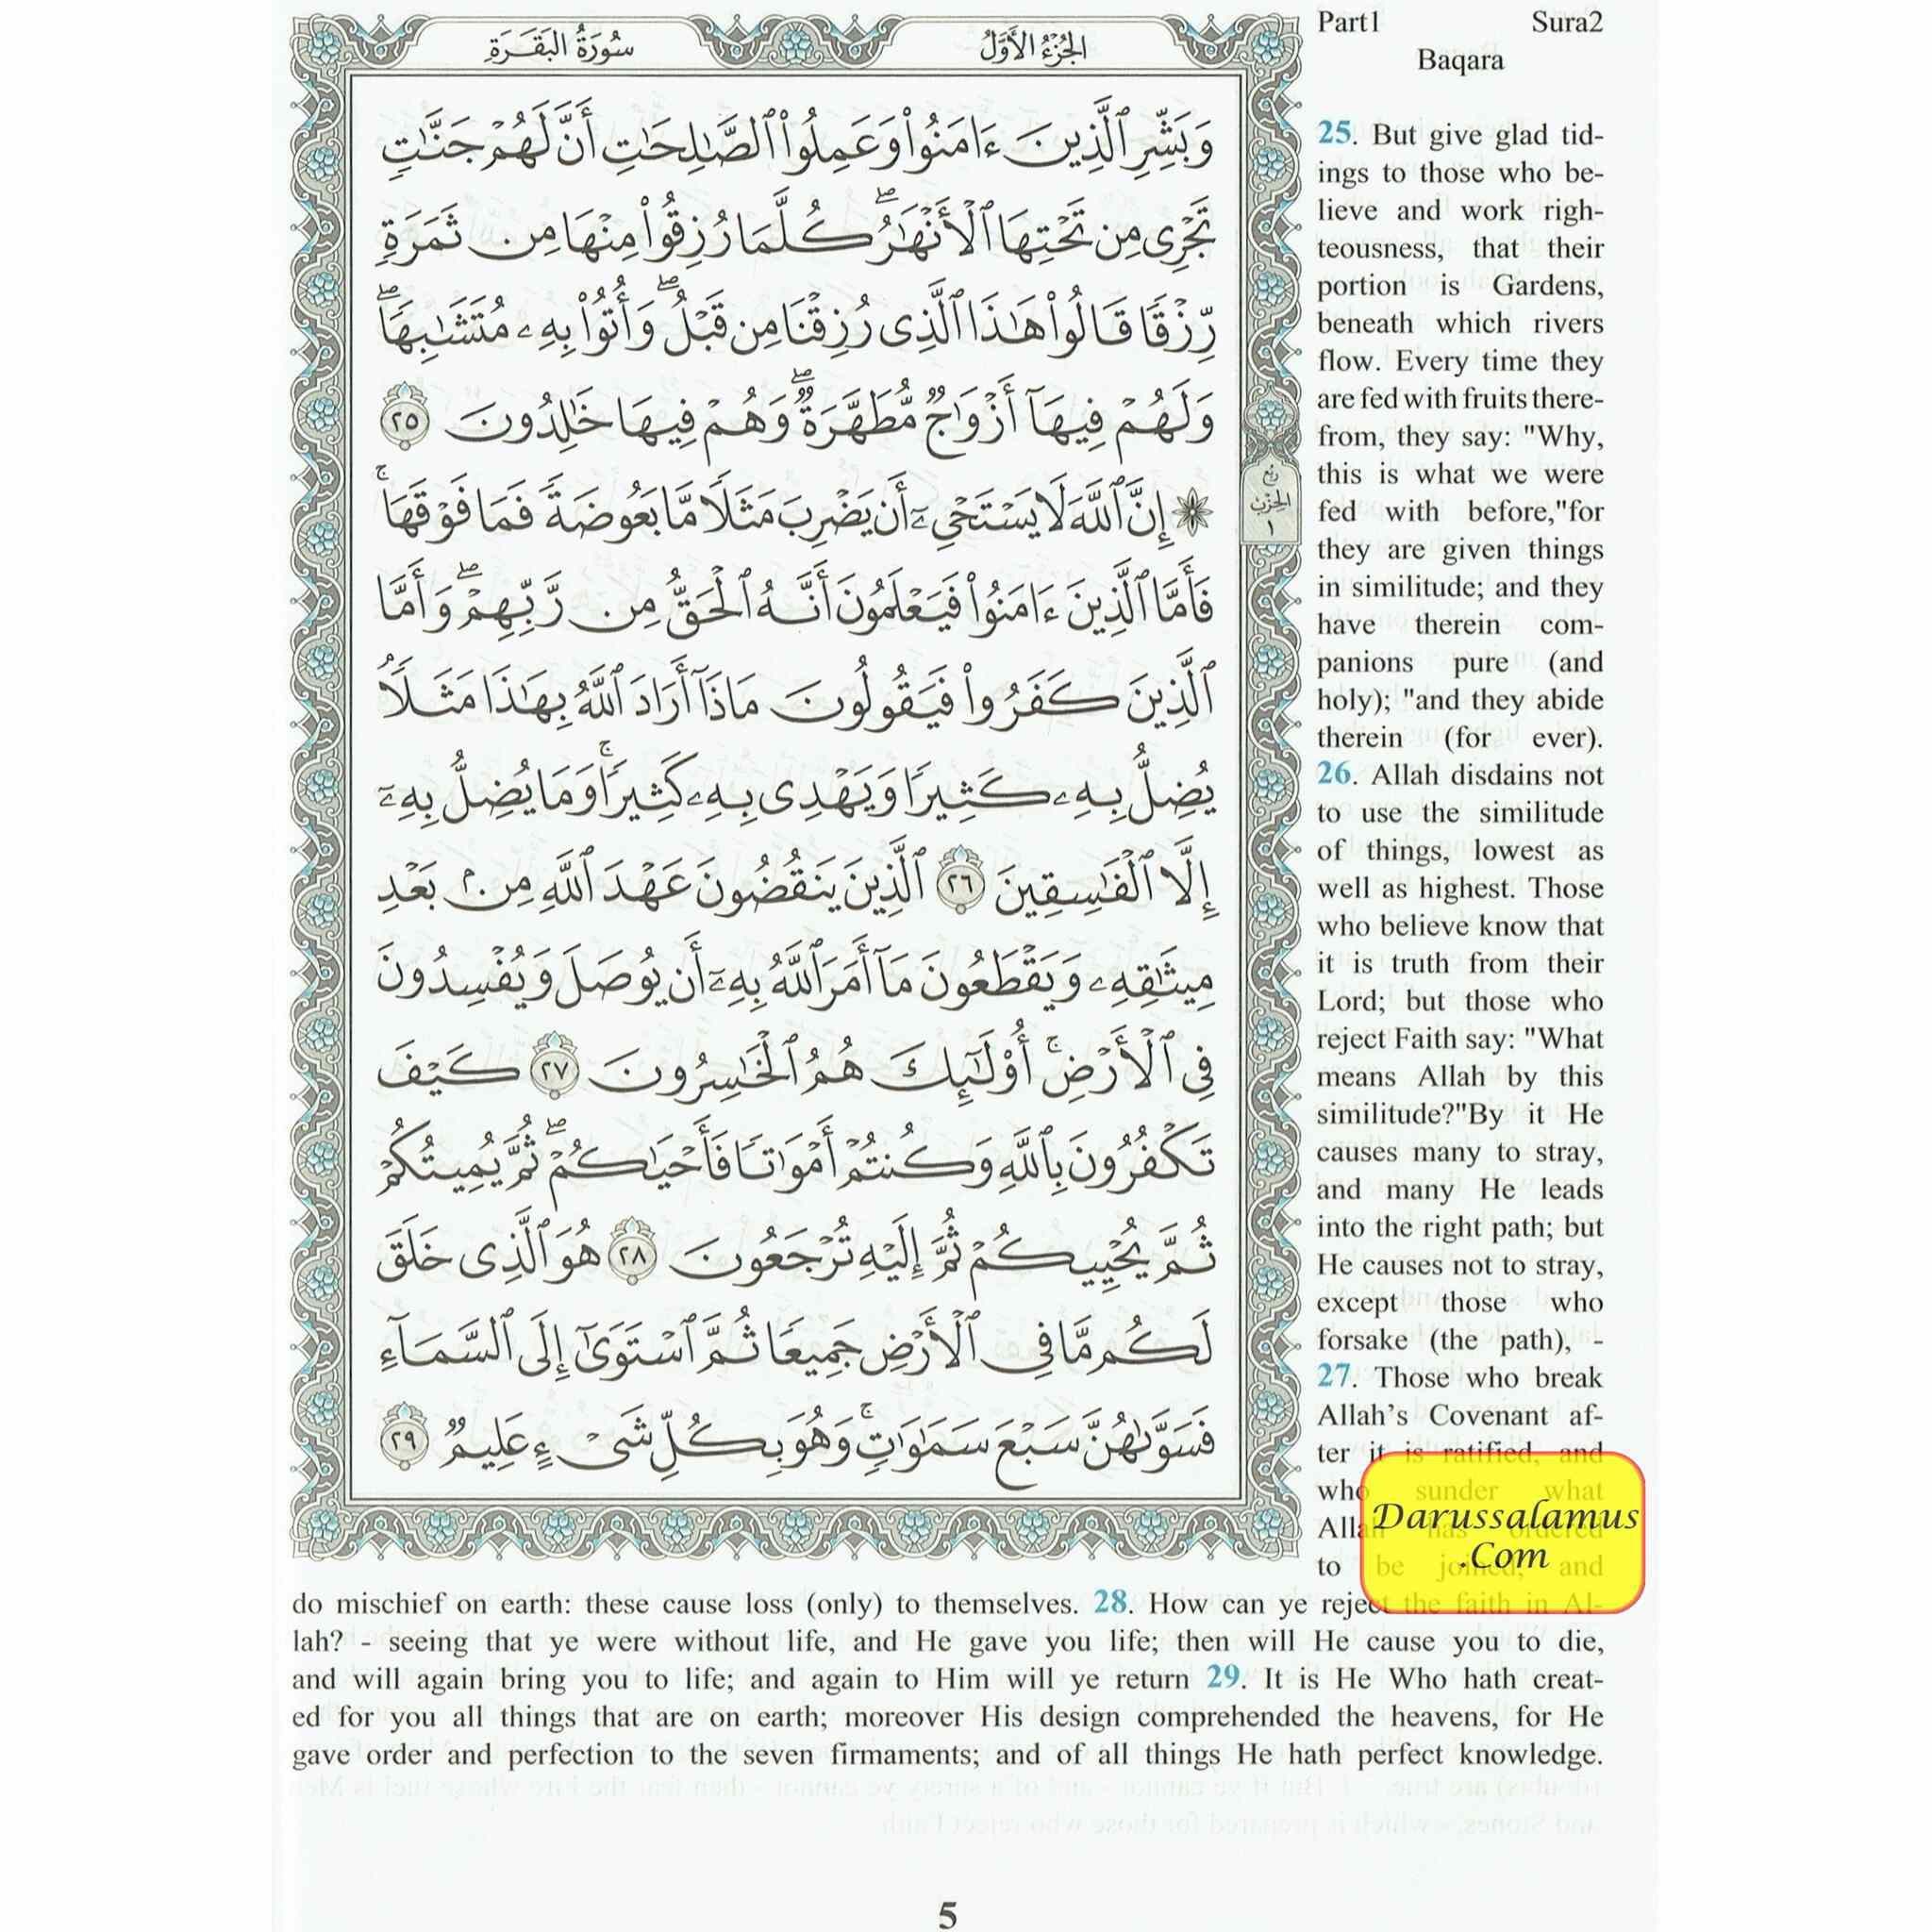 سُورَةُ البَقَرَةِ
الجُزْءُ الأَوَّلُ
وَبَشِّرِ ٱلَّذِينَ ءَامَنُوا۟ وَعَمِلُوا۟ ٱلصَّـٰلِحَـٰتِ أَنَّ لَهُمْ جَنَّـٰتٍ
تَجْرِى مِن تَحْتِهَا ٱلْأَنْهَـٰرُ ۖ كُلَّمَا رُزِقُوا۟ مِنْهَا مِن ثَمَرَةٍ
رِّزْقًا قَالُوا۟ هَـٰذَا ٱلَّذِى رُزِقْنَا مِن قَبْلُ ۖ وَأُتُوا۟ بِهِۦ مُتَشَـٰبِهًا ۖ
وَلَهُمْ فِيهَآ أَزْوَٰجٌ مُّطَهَّرَةٌ ۖ وَهُمْ فِيهَا خَـٰلِدُونَ ٢٥
۞ إِنَّ ٱللَّهَ لَا يَسْتَحْىِۦٓ أَن يَضْرِبَ مَثَلًا مَّا بَعُوضَةً فَمَا فَوْقَهَا ۚ
فَأَمَّا ٱلَّذِينَ ءَامَنُوا۟ فَيَعْلَمُونَ أَنَّهُ ٱلْحَقُّ مِن رَّبِّهِمْ ۖ وَأَمَّا
ٱلَّذِينَ كَفَرُوا۟ فَيَقُولُونَ مَاذَآ أَرَادَ ٱللَّهُ بِهَـٰذَا مَثَلًا ۘ
يُضِلُّ بِهِۦ كَثِيرًا وَيَهْدِى بِهِۦ كَثِيرًا ۚ وَمَا يُضِلُّ بِهِۦٓ
إِلَّا ٱلْفَـٰسِقِينَ ٢٦ ٱلَّذِينَ يَنقُضُونَ عَهْدَ ٱللَّهِ مِنۢ بَعْدِ
مِيثَـٰقِهِۦ وَيَقْطَعُونَ مَآ أَمَرَ ٱللَّهُ بِهِۦٓ أَن يُوصَلَ وَيُفْسِدُونَ
فِى ٱلْأَرْضِ ۚ أُو۟لَـٰٓئِكَ هُمُ ٱلْخَـٰسِرُونَ ٢٧ كَيْفَ
تَكْفُرُونَ بِٱللَّهِ وَكُنتُمْ أَمْوَٰتًا فَأَحْيَـٰكُمْ ۖ ثُمَّ يُمِيتُكُمْ
ثُمَّ يُحْيِيكُمْ ثُمَّ إِلَيْهِ تُرْجَعُونَ ٢٨ هُوَ ٱلَّذِى خَلَقَ
لَكُم مَّا فِى ٱلْأَرْضِ جَمِيعًا ثُمَّ ٱسْتَوَىٰٓ إِلَى ٱلسَّمَآءِ
فَسَوَّىٰهُنَّ سَبْعَ سَمَـٰوَٰتٍ ۚ وَهُوَ بِكُلِّ شَىْءٍ عَلِيمٌ ٢٩
رُبع
الحِزْب
١
Part1 Sura2
Baqara
25. But give glad tid-
ings to those who be-
lieve and work righ-
teousness, that their
portion is Gardens,
beneath which rivers
flow. Every time they
are fed with fruits there-
from, they say: "Why,
this is what we were
fed with before,"for
they are given things
in similitude; and they
have therein com-
panions pure (and
holy); "and they abide
therein (for ever).
26. Allah disdains not
to use the similitude
of things, lowest as
well as highest. Those
who believe know that
it is truth from their
Lord; but those who
reject Faith say: "What
means Allah by this
similitude?"By it He
causes many to stray,
and many He leads
into the right path; but
He causes not to stray,
except those who
forsake (the path), -
27. Those who break
Allah's Covenant af-
ter it is ratified, and
who sunder what
Allah has ordered
to be joined, and
Darussalamus
.Com
do mischief on earth: these cause loss (only) to themselves. 28. How can ye reject the faith in Al-
lah? - seeing that ye were without life, and He gave you life; then will He cause you to die,
and will again bring you to life; and again to Him will ye return 29. It is He Who hath creat-
ed for you all things that are on earth; moreover His design comprehended the heavens, for He
gave order and perfection to the seven firmaments; and of all things He hath perfect knowledge.
5